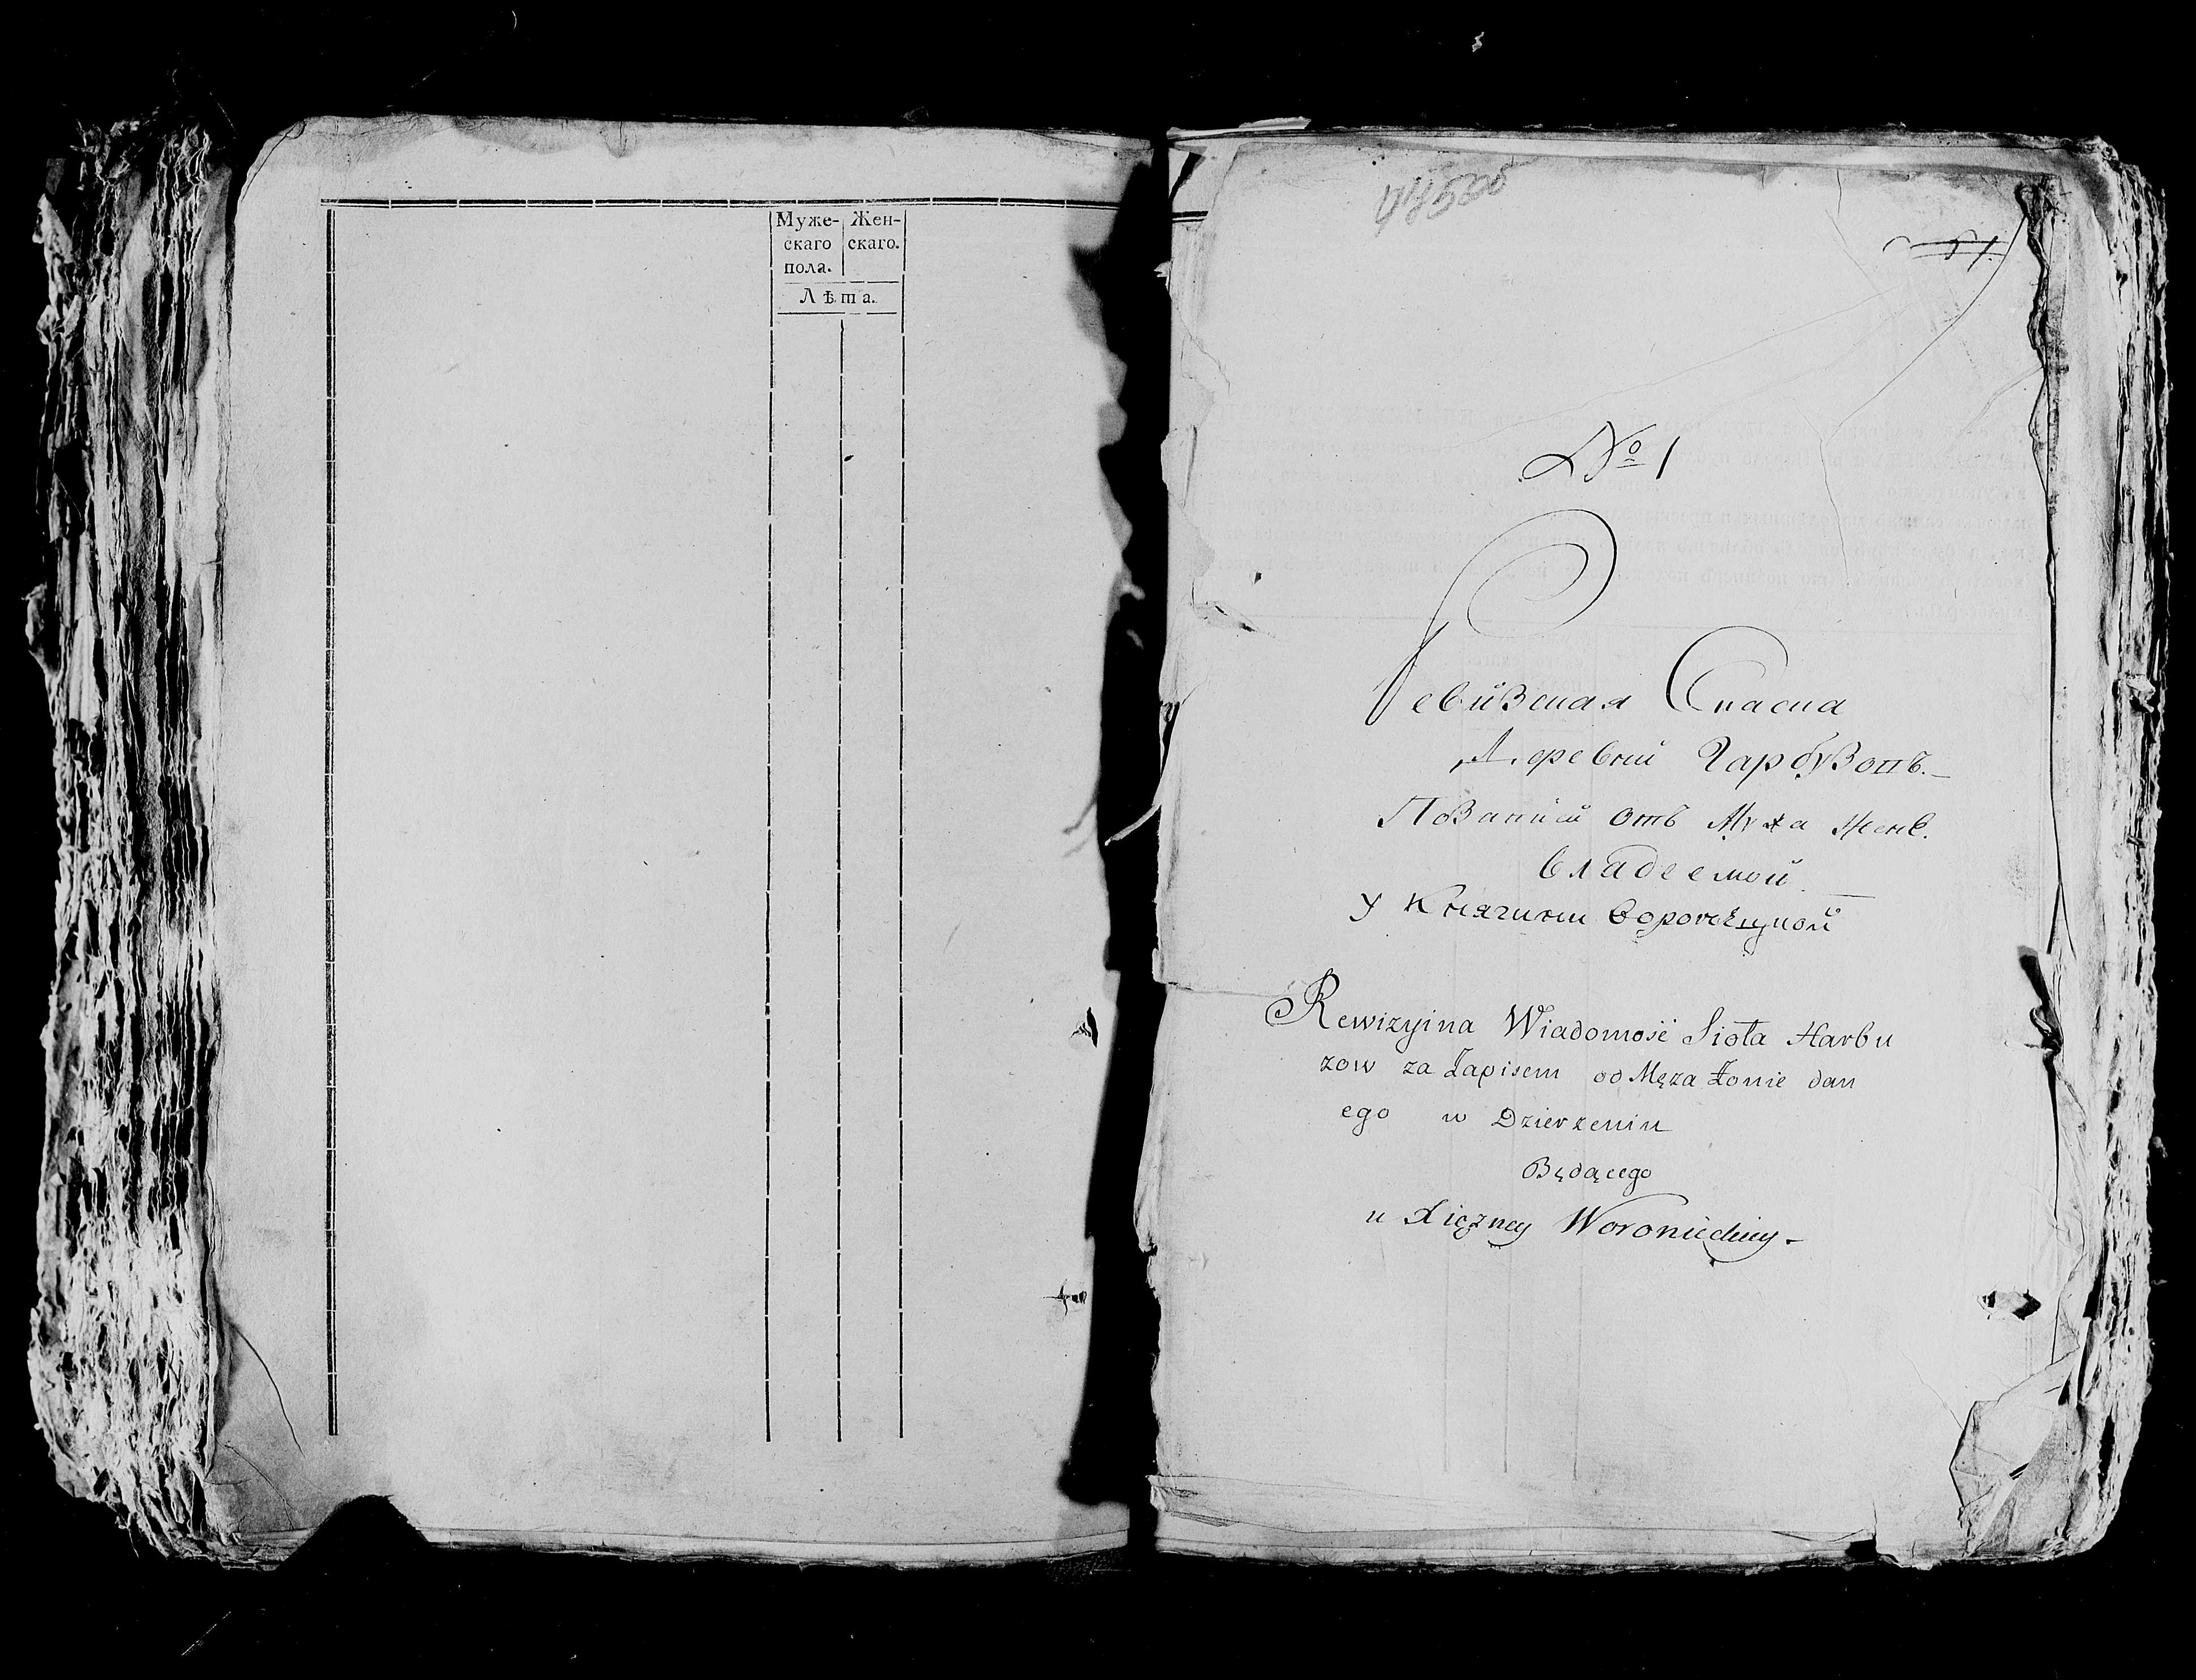 Муже- Жен-
скаго скаго.
пола.
Лѣта.
№ 1
Ревизская Сказка
Деревни Гарбузовъ.
По Записи отъ Мужа Жене.
владеемой
У Княгини Воронецкой
Rewizyina Wiadomość Sioła Harbu
zow za Zapisem od Męza Żonie dan
ego w Dzierzeniu
Będącego
u Xięzney Woronieckiey